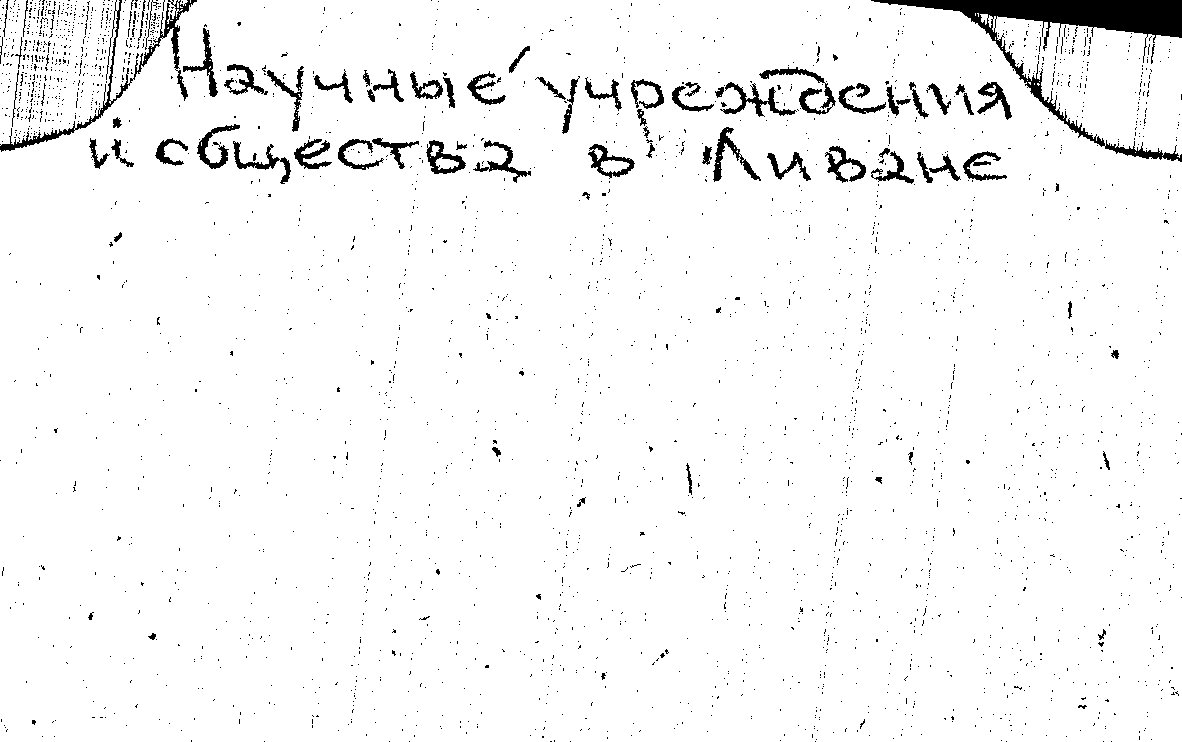 Научные учреждения
и общества в Ливане